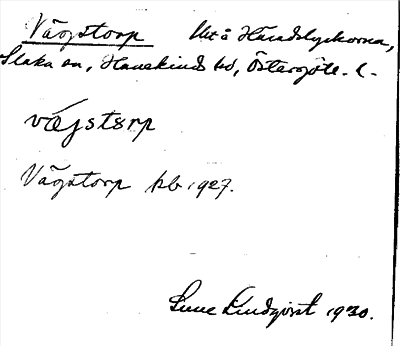 Vägstorp Ut å Häradslyckorna,
Slaka sn, Hanekinds hd, Östergötl. l.
vägstorp
Vägstorp kb 1927.
Sune Lindqvist 1930.